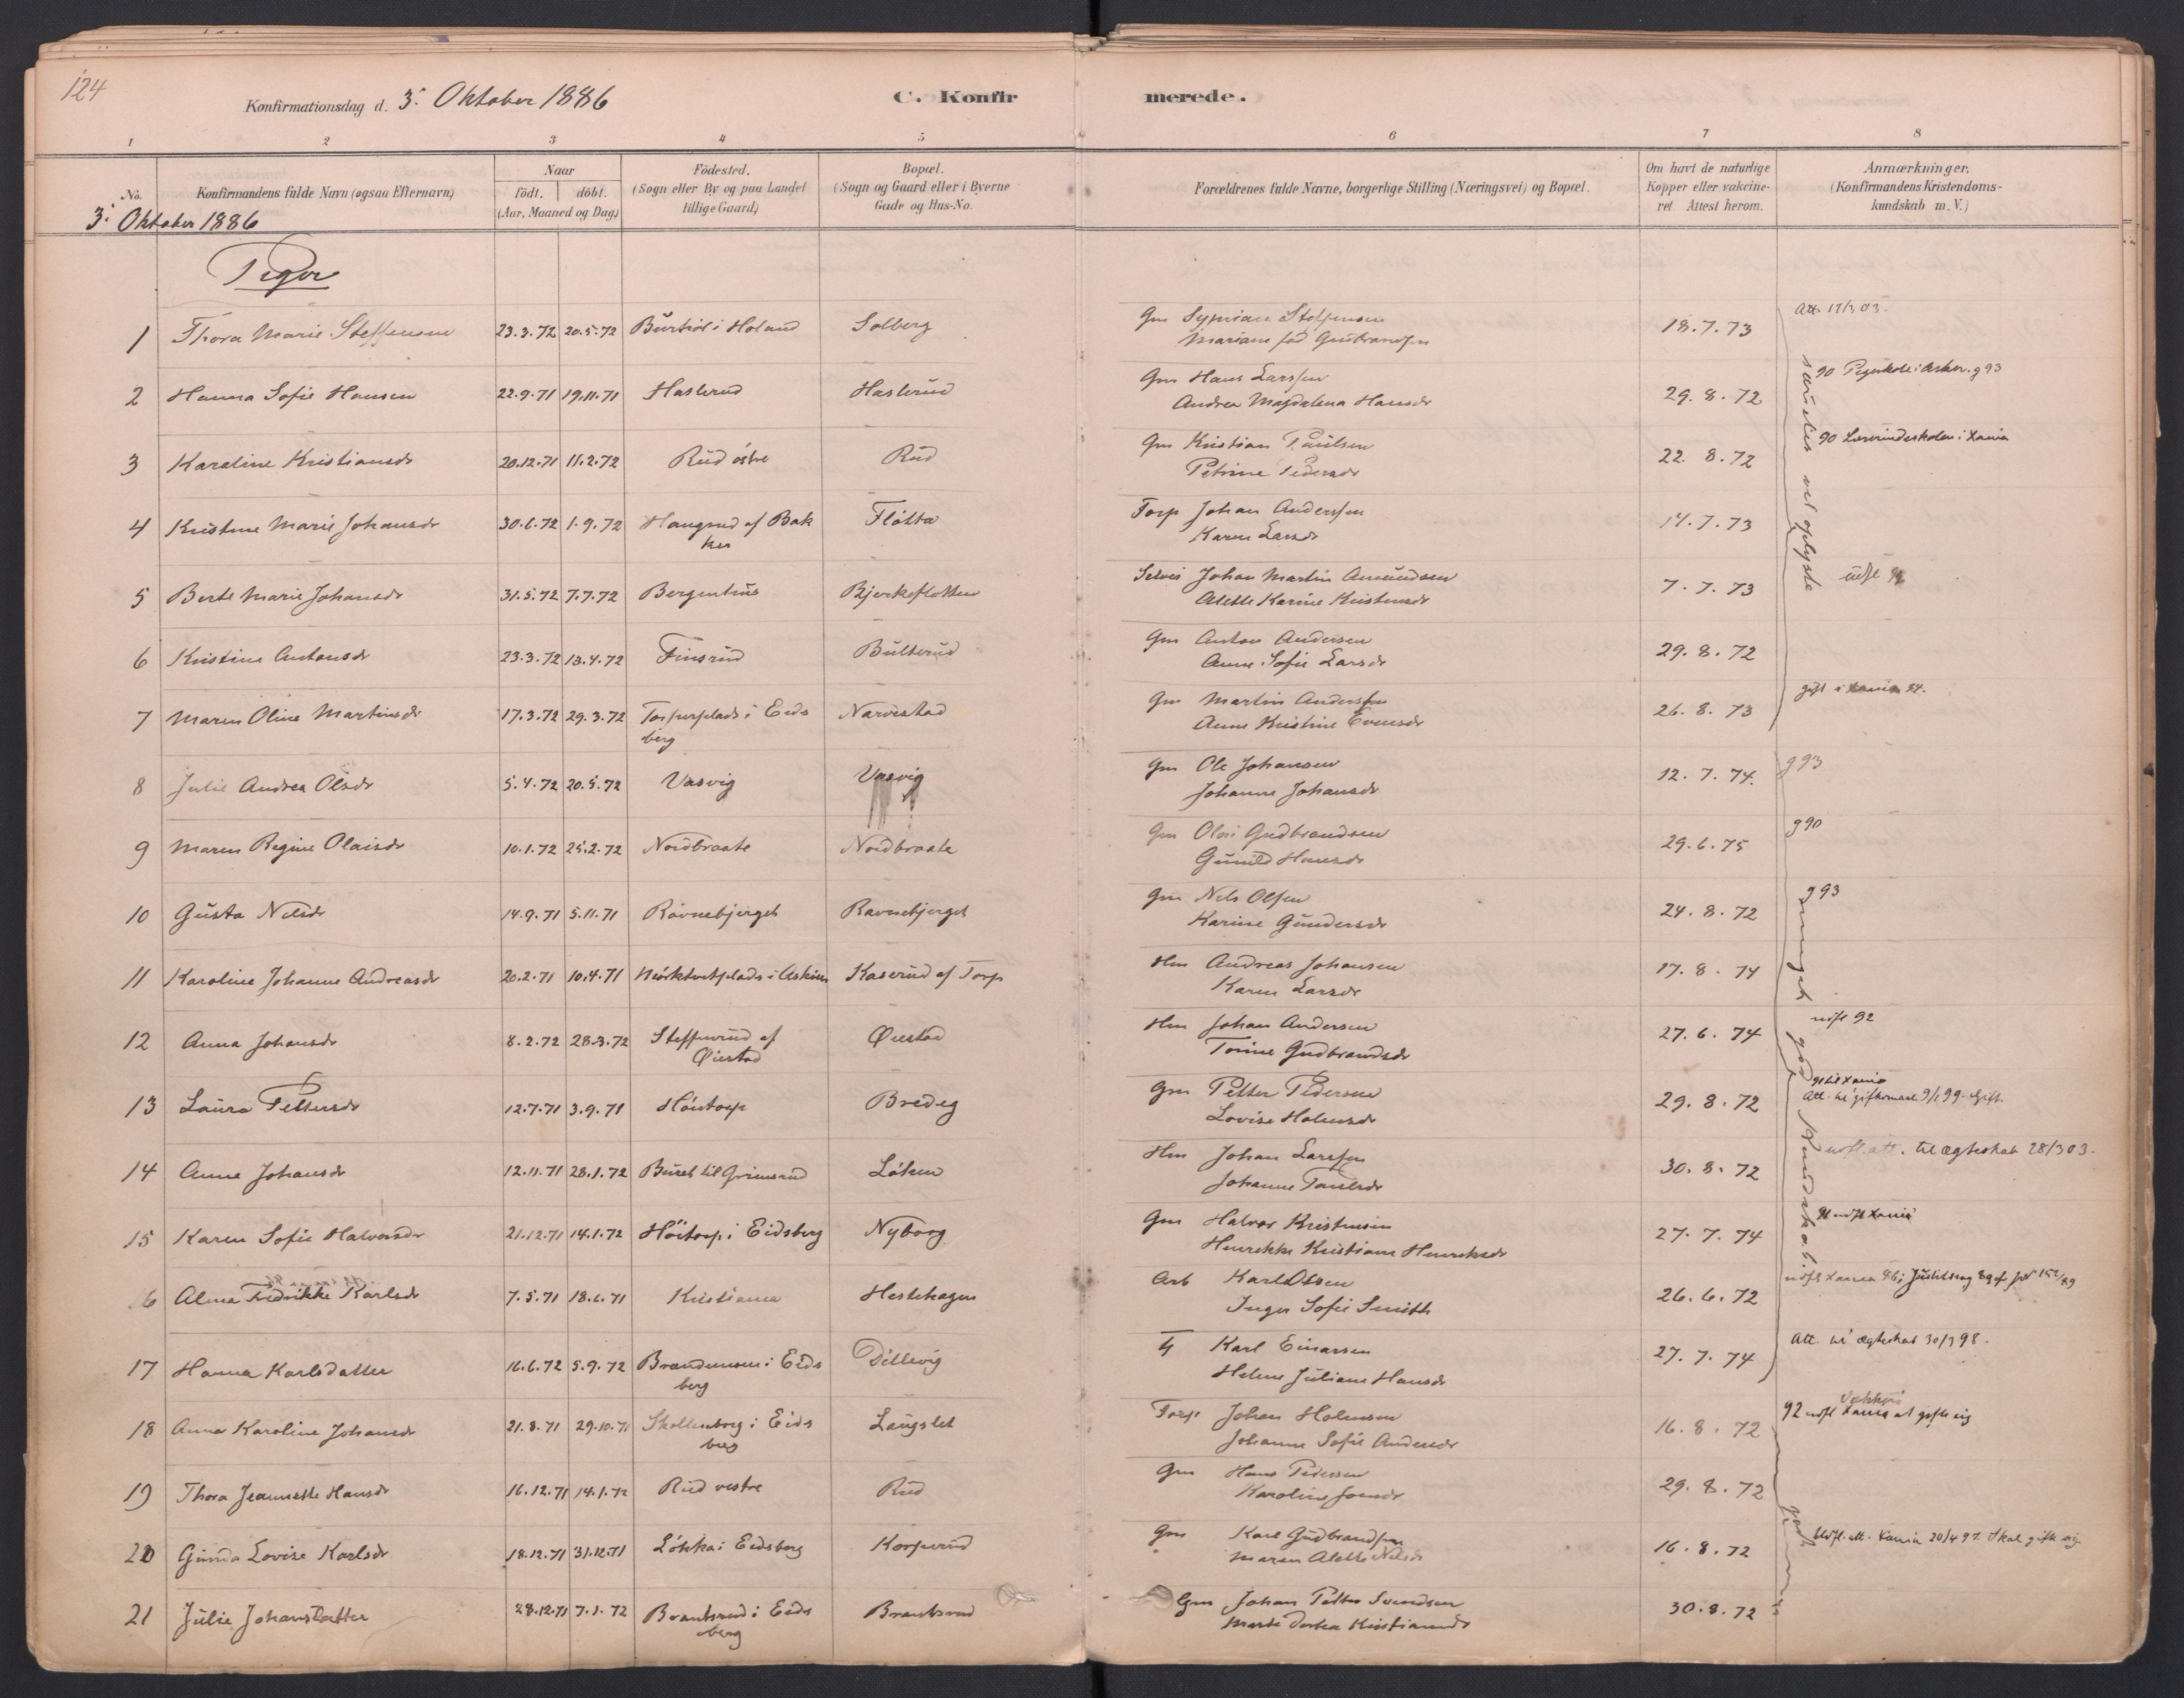 124
Konfirmationsdag d. 3. Oktober 1886
C. Konfir merede.
1 2 3 4 5 6 7 8
No.
Konfirmandens fulde Navn (ogsaa Efternavn)
Naar
födt. döbt.
(Aar, Maaned og Dag)
Födested.
(Sogn eller By og paa Landet
tillige Gaard)
Bopæl.
(Sogn og Gaard eller i Byerne
Gade og Hus-No.
Forældrenes fulde Navne, borgerlige Stilling (Næringsvei) og Bopæl.
Om havt de naturlige
Kopper eller vakcine-
ret. Attest herom.
Anmærkninger.
(Konfirmandens Kristendoms-
kundskab m. V.)
3. Oktober 1886
Piger
1 Thora Marie Steffensen 23.3.72 20.5.72 Höland Solberg Gm 18.7.73 Att. 17/3 03.
Mariane fød Gudbrandsen
2 Hanna Sofie Hansen 22.9.71 19.11.71 Haslerud Haslerud Gm Hans Larssen 29.8.72 90 Pigeskole i Asker. g 93
Andrea Magdalena Hansdr
3 Karoline Kristiansdr 20.12.71 11.2.72 Rud østre Rud Gm Kristian Paulsen 22.8.72 90 Lærerindeskolen i Xania
Petrine Pedersdr
4 Kristine Marie Johansdr 30.6.72 1.9.72 Haugrud af Bak Fløtta Torp Johan Anderssen 14.7.73
ker Karen Larsdr
5 Berte Marie Johansdr 31.5.72 7.7.72 Bjerkeflotten Johan Martin Amundsen 7.7.73
Alette Karine Kristensdr
6 Kristine Antonsdr 23.3.72 13.4.72 Finsrud Bulterud Gm Anton Andersen 29.8.72
Anne Sofie Larsdr
særdeles vel oplyste
7 Maren Oline Martinsdr 17.3.72 29.3.72 Torperplads i Eids Narvestad Gm Martin Anderssen 26.8.73 gift i Xania 94.
berg Anne Kristine Evensdr
8 Julie Andrea Olsdr 5.4.72 20.5.72 Vasvig Vasvig Gm Ole Johansen 12.7.74. g 93
Johanne Johansdr
9 Maren Regine Olaisdr 10.1.72 25.2.72 Nordbraate Nordbraate Gm Olai Gudbrandsen 29.6.75 g 90
Gunild Hansdr
10 Gusta Nilsdr 14.9.71 5.11.71 Ravnebjerget Ravnebjerget Gm Nils Olsen 24.8.72 g 93
Karine Gundersdr
11 Karoline Johanne Andreasdr 20.2.71 10.4.71 Mørktvetplads i Askim Kaserud af Torp Hm Andreas Johansen 17.8.74
Karen Larsdr
12 Anna Johansdr 8.2.72 28.3.72 Steffenrud af Øiestad Hm Johan Andersen 27.6.74 udfl 92
Øiestad Torine Gudbrandsdr
meget god Kundskab
13 Laura Pettersdr 12.7.71 3.9.71 Høitorp Bredeg Gm Petter Pedersen 29.8.72 91 til Xania
Lovise Holmsdr Att. til giftermaal 9/1 99. Gift.
14 Anne Johansdr 12.11.71 28.1.72 Buret til Grimsrud Løken Hm Johan Larssen 30.8.72 udfl. att. til ægteskab 28/3 03.
Johanne Paulsdr
15 Karen Sofie Halvorsdr 21.12.71 14.1.72 Høitorp i Eidsberg Nyborg Gm Halvor Kristensen 27.7.74 91 udfl Xania
Henrikke Kristiane Henriksdr
16 Alma Fredrikke Karlsdr 7.5.71 18.6.71 Kristiania Hestehagen Arb Karl Olsen 26.6.72
Inger Sofie Smith
17 Hanna Karlsdatter 16.6.72 5.9.72 Brandemoen i Eids Dillevig Karl Einarsen 27.7.74 Att. til ægteskab 30/3 98.
berg Helene Juliane Hansdr
18 Anna Karoline Johansdr 21.8.71 29.10.71 Skollenborg i Eids Langslet Torp Johan Holmsen 16.8.72 92 udfl Xania at gifte sig
berg Johanne Sofie Andersdr
19 Thora Jeannette Hansdr 16.12.71 14.1.72 Rud vestre Rud Gm Hans Pedersen 29.8.72
Karoline Jonsdr
20 Gunda Lovise Karlsdr 18.12.71 31.12.71 Løkka i Eidsberg Korperud Gm Karl Gudbrandsen 16.8.72 Udfl. att. Xania 20/4 97. Skal gifte sig
Maren Alette Nilsdr
god
21 Julie Johansdatter 28.12.71 7.1.72 Brantsrud i Eids Brantsrud Gm Johan Petter Svendsen 30.8.72
berg Marte Dortea Kristiansdr